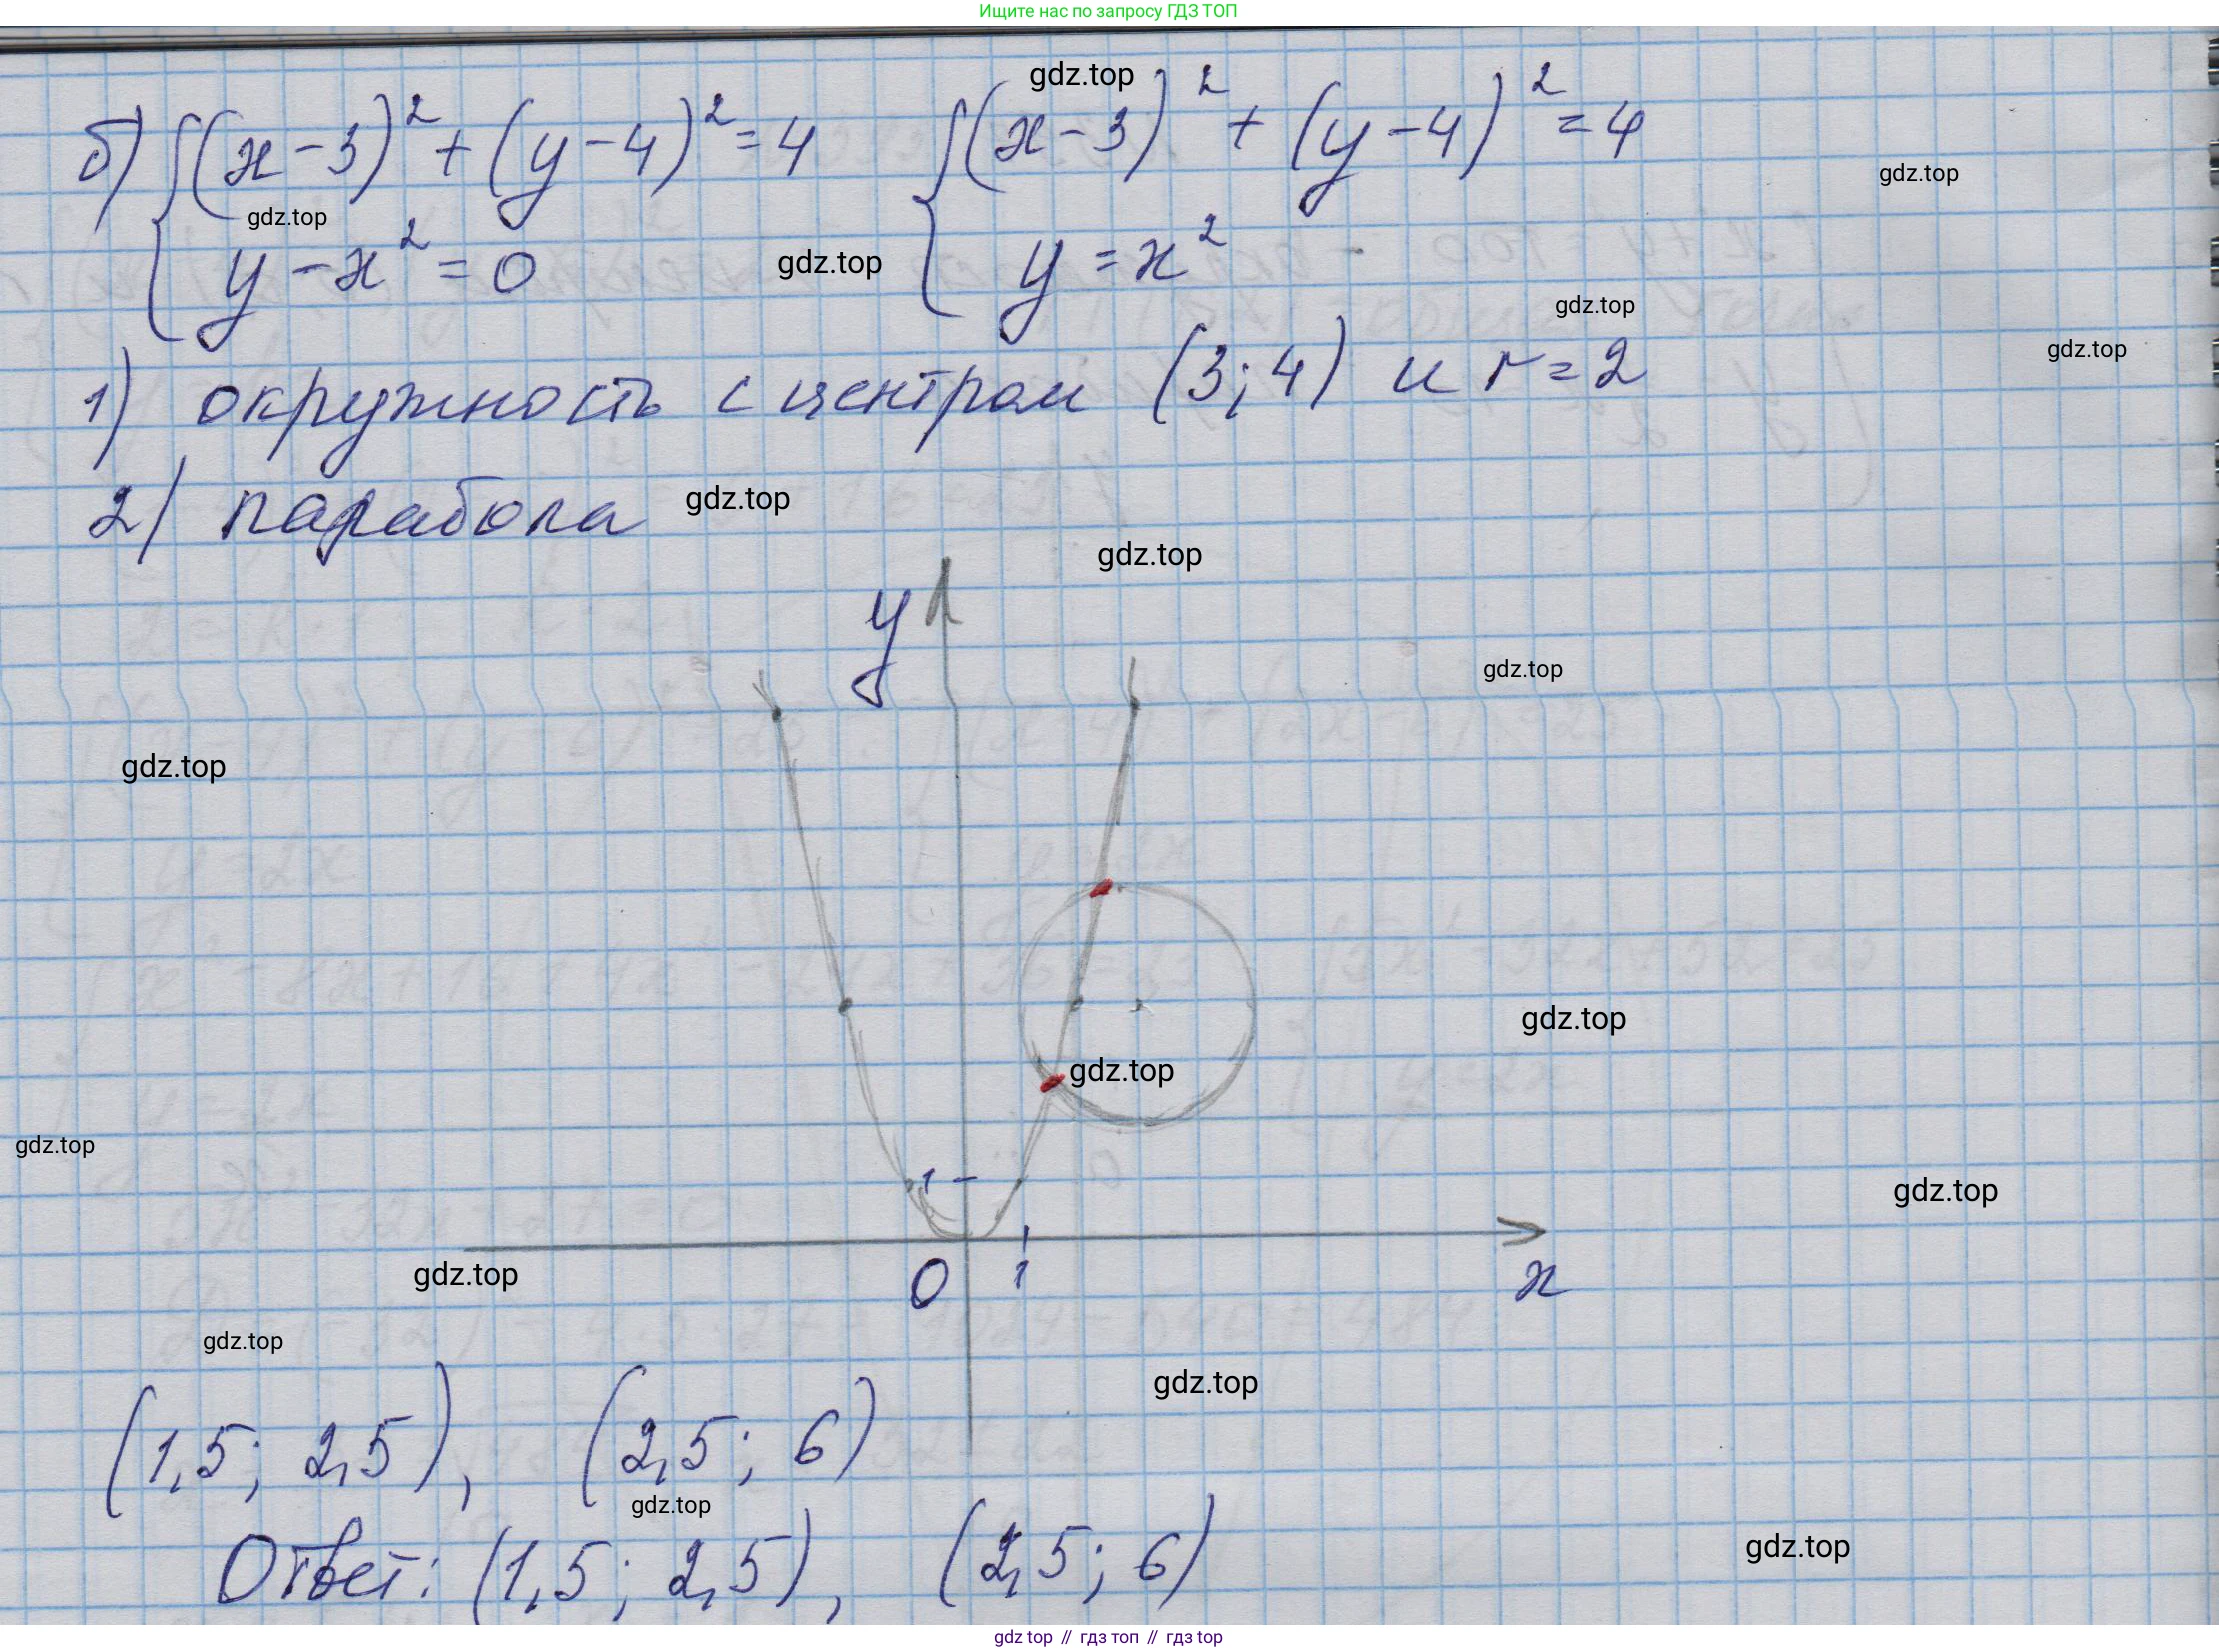 Ищите нас по запросу ГДЗ ТОП
gdz.top
б) { (x-3)² + (y-4)² = 4 { (x-3)² + (y-4)² = 4
gdz.top
gdz.top
y - x² = 0 y = x²
gdz.top
gdz.top
gdz.top
1) окружность с центром (3; 4) и r = 2
2) парабола
gdz.top
gdz.top
y
gdz.top
gdz.top
gdz.top
gdz.top
gdz.top
1
gdz.top
0 1 x
gdz.top
gdz.top
gdz.top
(1,5; 2,5), (2,5; 6)
gdz.top
Ответ: (1,5; 2,5), (2,5; 6)
gdz.top
gdz top // гдз топ // гдз top